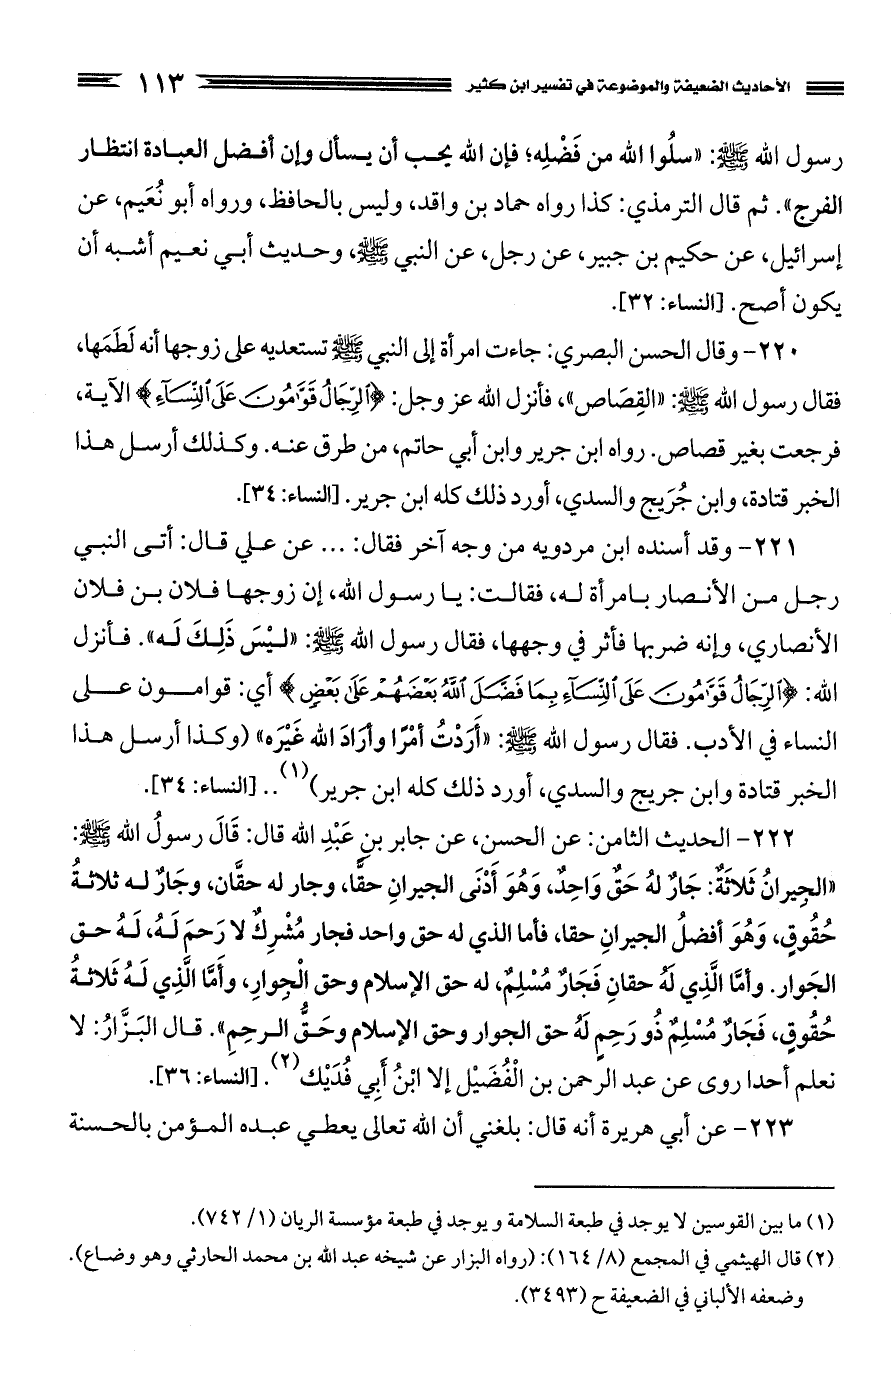 الأحاديث الضعيفة والموضوعة في تفسير ابن كثير ١١٣
رسول الله ﷺ: «سلُوا الله من فَضْلِه؛ فإن الله يحب أن يسأل وإن أفضل العبادة انتظار
الفرج». ثم قال الترمذي: كذا رواه حماد بن واقد، وليس بالحافظ، ورواه أبو نُعَيم، عن
إسرائيل، عن حكيم بن جبير، عن رجل، عن النبي ﷺ، وحديث أبي نعيم أشبه أن
يكون أصح. [النساء: ٣٢].
٢٢٠- وقال الحسن البصري: جاءت امرأة إلى النبي ﷺ تستعديه على زوجها أنه لَطَمَها،
فقال رسول الله ﷺ: «القِصَاص»، فأنزل الله عز وجل: ﴿ٱلرِّجَالُ قَوَّٰمُونَ عَلَى ٱلنِّسَآءِ﴾ الآية،
فرجعت بغير قصاص. رواه ابن جرير وابن أبي حاتم، من طرق عنه. وكذلك أرسل هذا
الخبر قتادة، وابن جُرَيج والسدي، أورد ذلك كله ابن جرير. [النساء: ٣٤].
٢٢١- وقد أسنده ابن مردويه من وجه آخر فقال: ... عن علي قال: أتى النبي
رجل من الأنصار بامرأة له، فقالت: يا رسول الله، إن زوجها فلان بن فلان
الأنصاري، وإنه ضربها فأثر في وجهها، فقال رسول الله ﷺ: «ليْسَ ذَلِكَ لَه». فأنزل
الله: ﴿ٱلرِّجَالُ قَوَّٰمُونَ عَلَى ٱلنِّسَآءِ بِمَا فَضَّلَ ٱللَّهُ بَعْضَهُمْ عَلَىٰ بَعْضٍ﴾ أي: قوامون على
النساء في الأدب. فقال رسول الله ﷺ: «أَرَدْتُ أمْرًا وأرَادَ الله غَيْرَه» (وكذا أرسل هذا
الخبر قتادة وابن جريج والسدي، أورد ذلك كله ابن جرير)(١).. [النساء: ٣٤].
٢٢٢- الحديث الثامن: عن الحسن، عن جابر بنِ عَبْدِ الله قال: قَالَ رسولُ الله ﷺ:
«الجِيرانُ ثَلاثَةٌ: جَارٌ لهُ حَقٌ وَاحِدٌ، وَهُوَ أَدْنَى الجيرانِ حقًّا، وجار له حقَّان، وجَارٌ له ثلاثةُ
حُقُوقٍ، وَهُوَ أفضلُ الجيرانِ حقا، فأما الذي له حق واحد فجار مُشْرِكٌ لا رَحمَ لَهُ، لَهُ حق
الجَوار. وأمَّا الَّذِي لَهُ حقانِ فَجَارٌ مُسْلِمٌ، له حق الإسلام وحق الْجِوارِ، وأمَّا الَّذِي لَهُ ثَلاثةُ
حُقُوقٍ، فَجَارٌ مُسْلِمٌ ذُو رَحِمٍ لَهُ حق الجوار وحق الإسلام وحَقُّ الرحِمِ». قال البَزَّارُ: لا
نعلم أحدا روى عن عبد الرحمن بن الْفُضَيْل إلا ابْنُ أَبِي فُدَيْك(٢). [النساء: ٣٦].
٢٢٣- عن أبي هريرة أنه قال: بلغني أن الله تعالى يعطي عبده المؤمن بالحسنة
(١) ما بين القوسين لا يوجد في طبعة السلامة ويوجد في طبعة مؤسسة الريان (١/ ٧٤٢).
(٢) قال الهيثمي في المجمع (٨/ ١٦٤): (رواه البزار عن شيخه عبد الله بن محمد الحارثي وهو وضاع).
وضعفه الألباني في الضعيفة ح (٣٤٩٣).